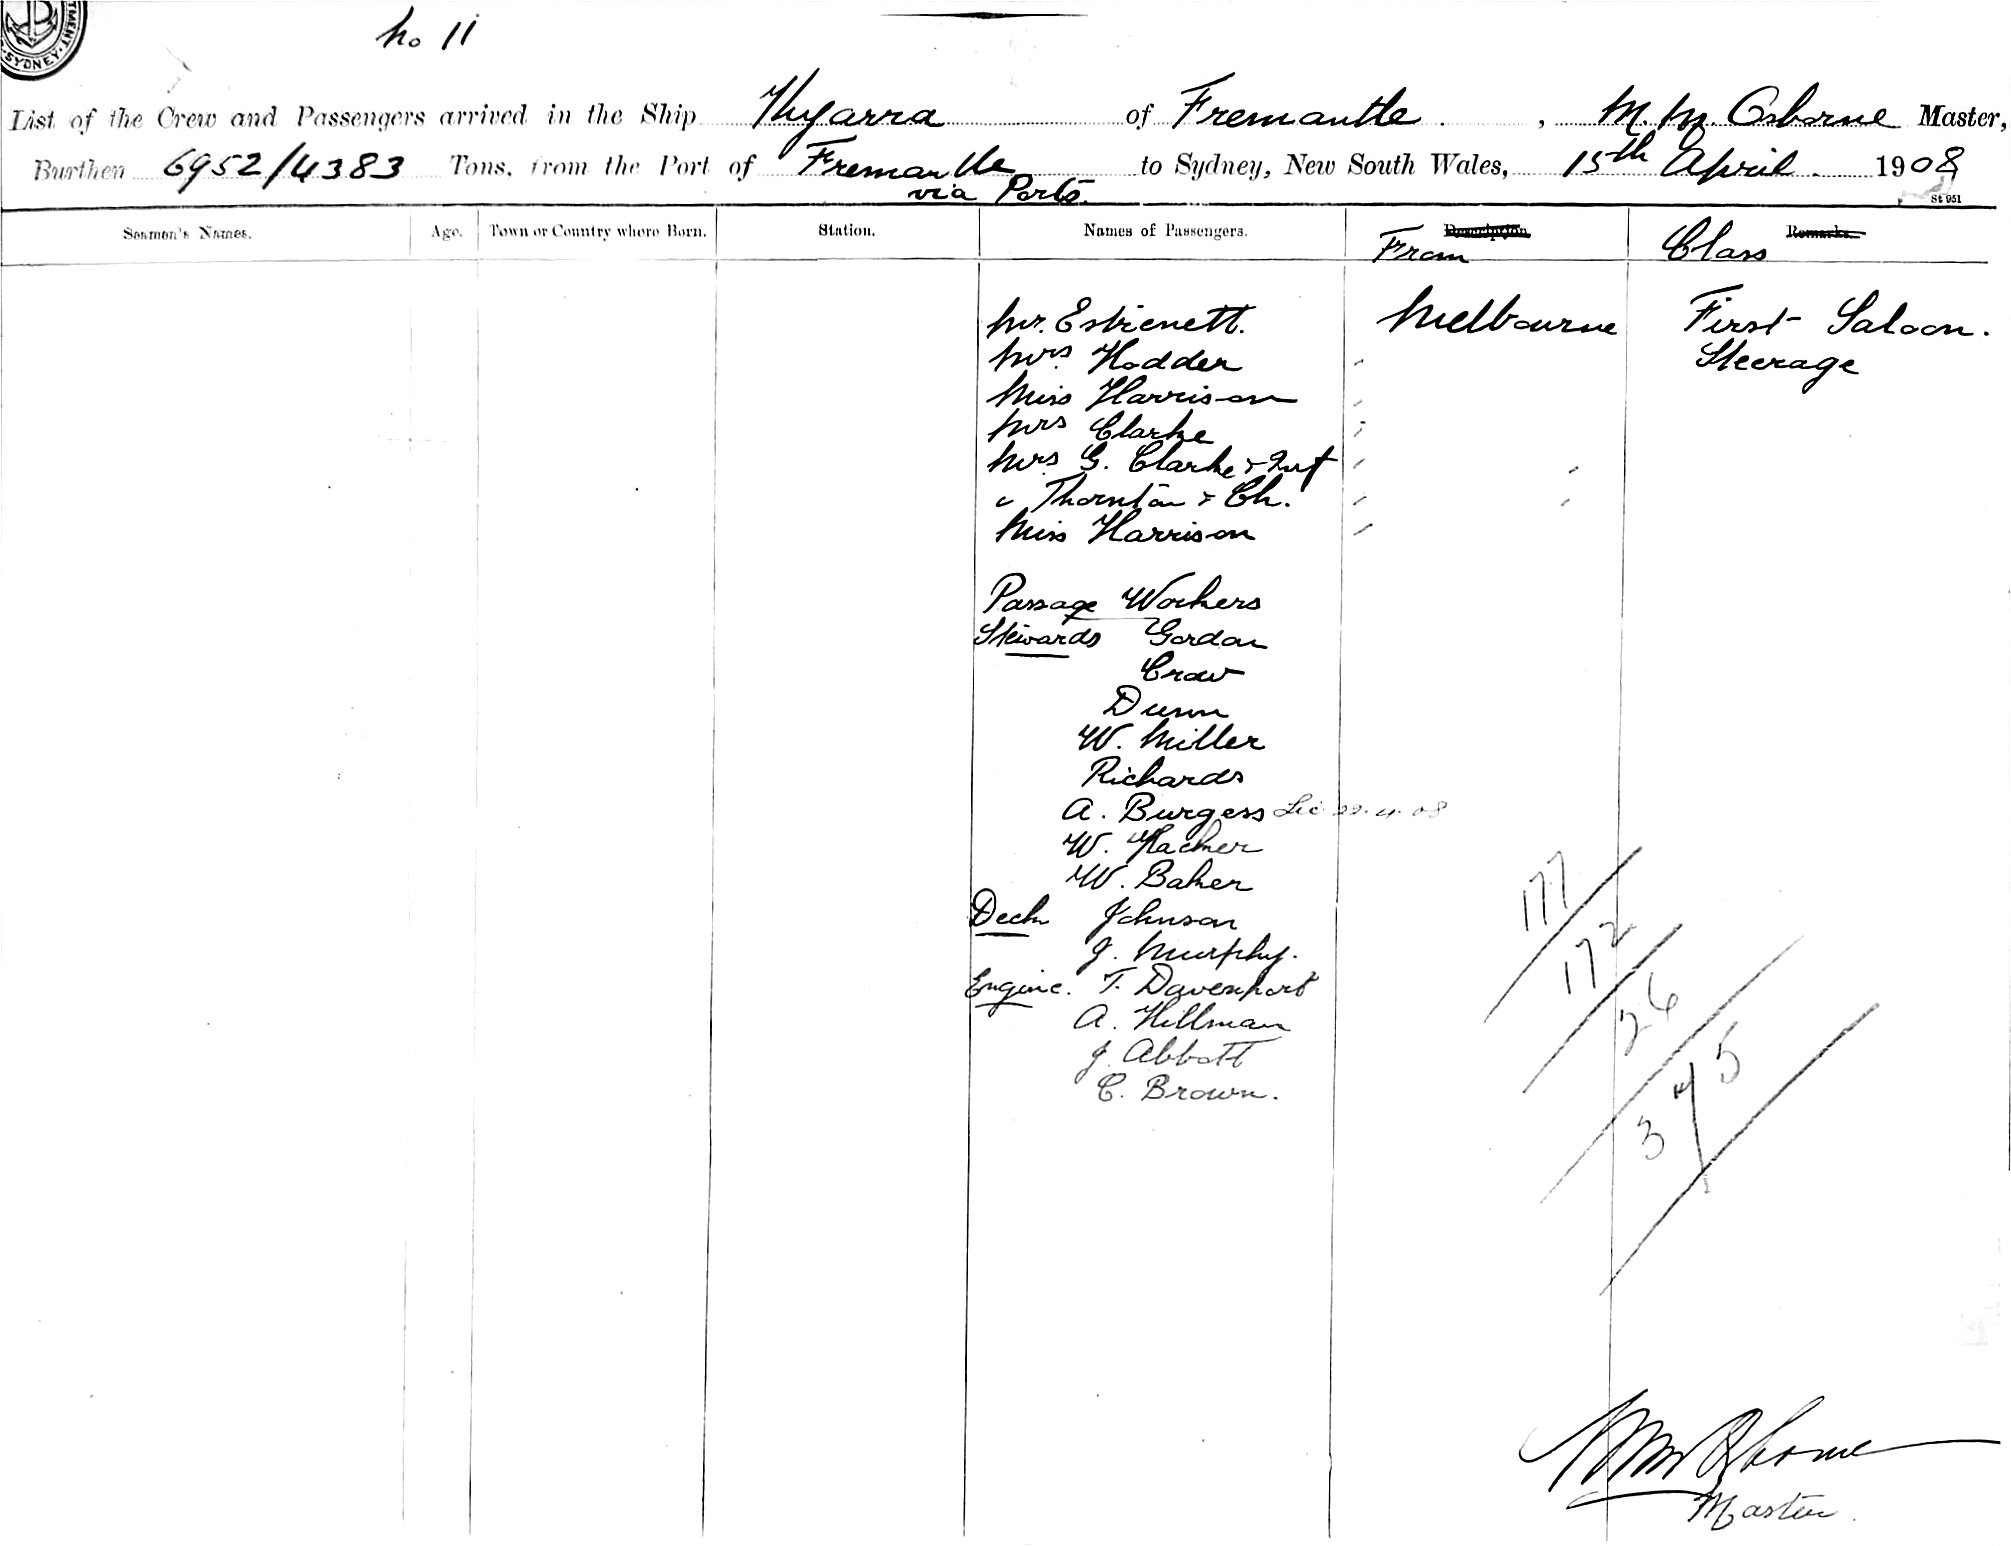 TMENT. SYDNEY.
No 11
List of the Crew and Passengers arrived in the Ship Kyarra of Fremantle, M. M. Osborne Master,
Burthen 6952/4383 Tons, from the Port of Fremantle via Ports to Sydney, New South Wales, 15th April. 1908
St 951
Seamen's Names. Age. Town or Country where Born. Station. Names of Passengers. Description. From Remarks. Class
Mr. Melbourne First Saloon.
Mrs. Hodder " Steerage
Miss Harrison "
Mrs Clarke "
Mrs G. Clarke & Inf " "
" Thornton & Ch. " "
Miss Harrison "
Passage Workers
Stewards Gordon
Crow
Dunn
W. Miller
Richards
A. Burgess 22.4.08
W.
W. Baker
Deck Johnson
J. Murphy.
Engine. T. Davenport
A. Hillman
J. Abbott
C. Brown.
177
172
26
375
M M Osborne
Master.